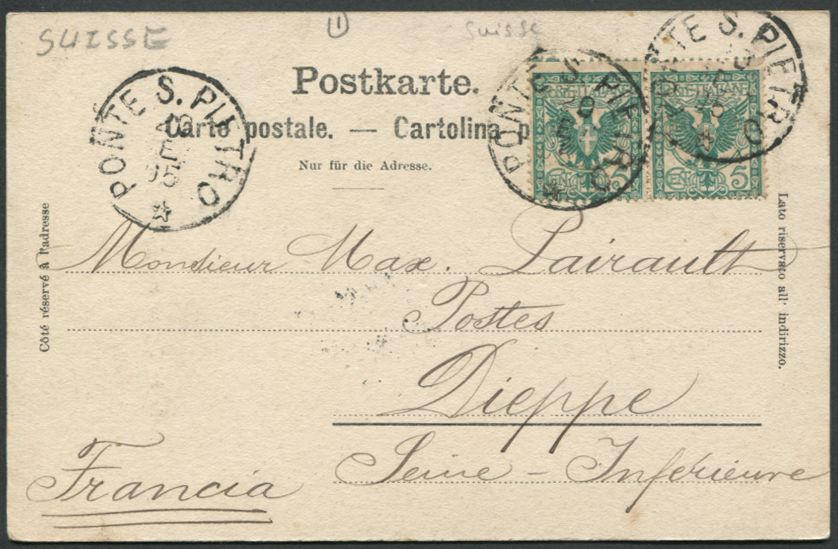 SUISSE
1
suisse
Postkarte.
Carte postale. — Cartolina p
Nur für die Adresse.
PONTE S. PIETRO
05
PONTE S. PIETRO
PONTE S. PIETRO
5
Côté réservé à l'adresse
Lato riservato all' indirizzo.
Monsieur Max. Pairault
Postes
Dieppe
Seine - Inférieure
Francia